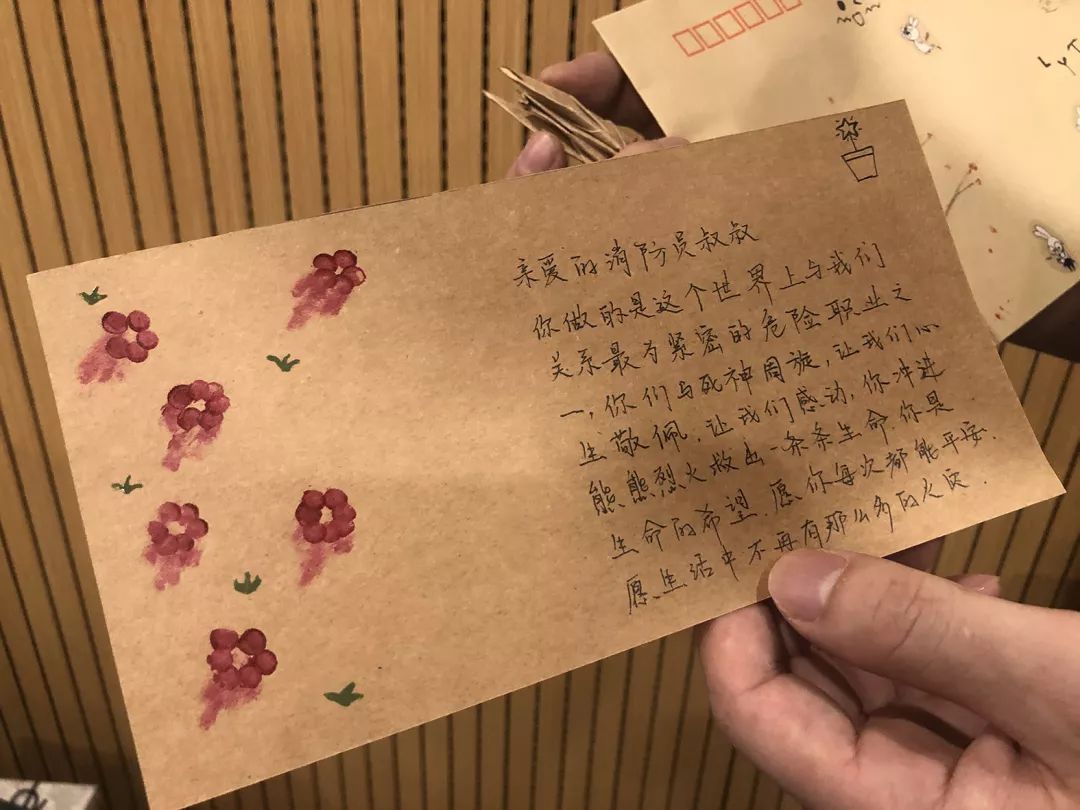 LyT
亲爱的消防员叔叔
你做的是这个世界上与我们
关系最为紧密的危险职业之
一，你们与死神周旋，让我们心
生敬佩，让我们感动，你冲进
熊熊烈火救出一条条生命，你是
生命的希望，愿你每次都能平安．
愿生活中不再有那么多的火灾．